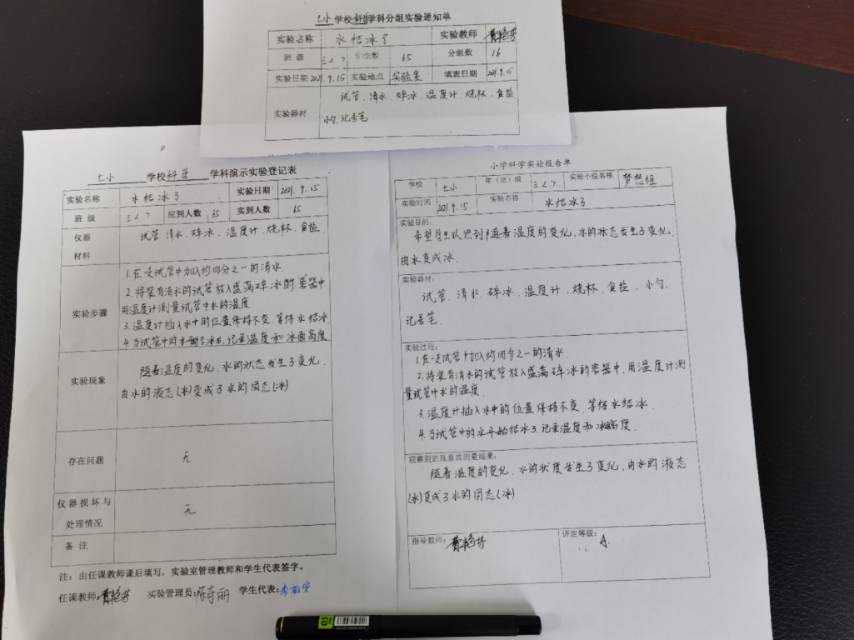 土小 学校 科学 学科分组实验通知单
实验名称 水结冰了 实验教师
班级 三2.7 65 分组数 16
实验日期 2021.9.15 实验地点 实验室 填表日期 2021.9.15
实验器材 试管、清水、碎冰、温度计、烧杯、食盐
小勺、记录笔
土小 学校 科学 学科演示实验登记表
实验名称 水结冰了 实验日期 2021.9.15
班级 三2.7 应到人数 65 实到人数 65
仪器 试管 清水、碎冰、温度计、烧杯、食盐
材料
实验步骤
1.在一支试管中加入约四分之一的清水.
2.将装有清水的试管放入盛满碎冰的容器中
用温度计测量试管中水的温度
3.温度计插入水中的位置保持不变,等待水结冰
4.当试管中的 记录温度和冰面高度
实验现象 随着温度的变化,水的状态发生了变化,
由水的液态(水)变成了水的固态(冰)
存在问题 无
仪器损坏与
处理情况 无
备注
注:由任课教师课后填写,实验室管理教师和学生代表签字。
任课教师: 实验管理员: 学生代表:
小学科学实验报告单
学校 土小 年(班)级 三2.7 实验小组名称 梦想组
实验时间 2021.9.15 实验名称 水结冰了
实验目的:
希望学生认识到随着温度的变化,水的状态发生了变化,
由水变成冰.
实验器材:
试管、清水、碎冰、温度计、烧杯、食盐、小勺、
记录笔.
实验过程:
1.在一支试管中加入约四分之一的清水.
2.将装有清水的试管放入盛满碎冰的容器中,用温度计测
量试管中水的温度
3.温度计插入水中的位置保持不变,等待水结冰.
4.当试管中的水开始结冰了记录温度和冰面高度.
观察到的现象或测量结果:
随着温度的变化,水的状态发生了变化,由水的液态
(水)变成了水的固态(冰)
指导教师: 评定等级: A.